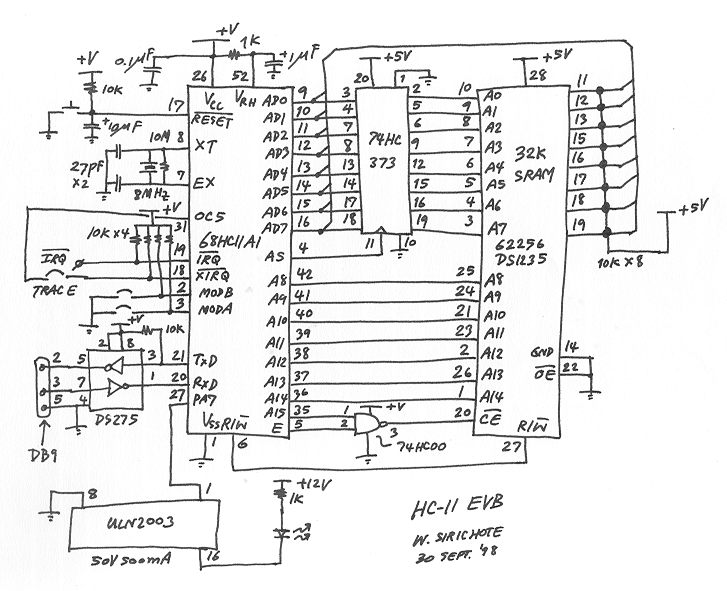 +V
0.1µF
1K
+1µF
26
52
+5V
20
1
+5V
28
+V
10K
17
VCC
VRH
RESET
+10µF
10M
8
XT
27pF
X2
8MHz
7
EX
+V
OC5
31
10K X4
68HC11A1
IRQ
19
IRQ
18
XIRQ
TRACE
2
MODB
3
MODA
+V
10K
2
8
2
5
3
21
TxD
3
7
1
20
RxD
5
4
27
PA7
DS275
DB9
VSS
R/W
1
6
AD0
9
3
2
10
A0
11
AD1
10
4
5
9
A1
12
AD2
11
7
6
8
A2
13
AD3
12
8
9
7
A3
15
AD4
13
13
12
6
A4
16
AD5
14
14
15
5
A5
17
AD6
15
17
16
4
A6
18
AD7
16
18
19
3
A7
19
74HC
373
32K
SRAM
62256
DS1235
+5V
10K X8
AS
4
11
10
A8
42
25
A8
A9
41
24
A9
A10
40
21
A10
A11
39
23
A11
A12
38
2
A12
A13
37
26
A13
A14
36
1
A14
A15
35
1
+V
20
CE
E
5
2
3
74HC00
GND
14
OE
22
R/W
27
8
1
ULN2003
16
50V 500mA
+12V
1K
HC-11 EVB
W. SIRICHOTE
30 SEPT. '98